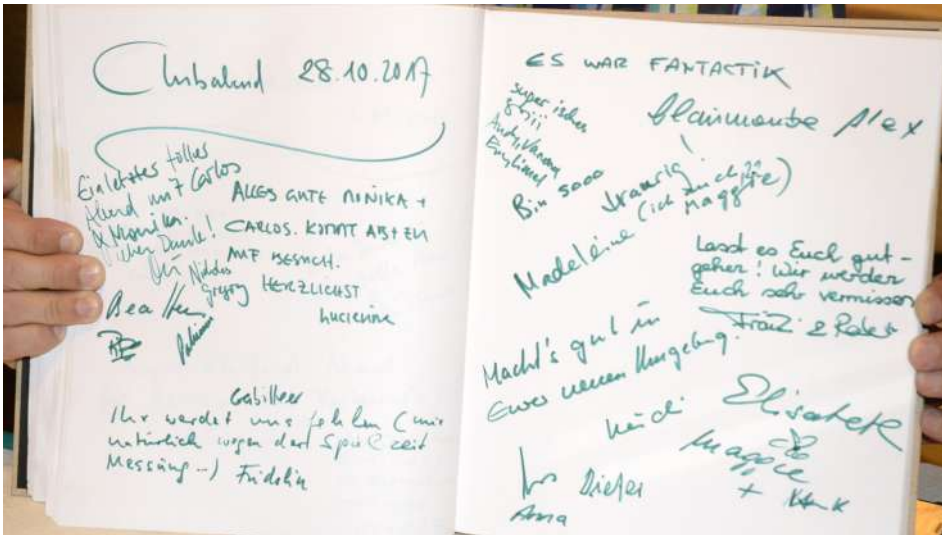 Clubabend 28.10.2017
Ein letztes tolles
Abend mit Carlos
& Monika.
Danke!
Nikolas
gregory
Bea
ALLES GUTE MONIKA +
CARLOS. KOMMT AB+ZU
AUF BESUCH.
HERZLICHST
Lucienne
Ihr werdet uns fehlen (mir
natürlich wegen der Spielzeit
Messung..) Fridolin
ES WAR FANTACTIK
super isches
gsii
Bin 5000
Alex
traurig!
(ich auch,
Maggie)
Madeleine
Lasst es Euch gut-
gehen! Wir werden
Euch sehr vermissen
Fränzi & Robert
Macht's gut in
Euer neuen Umgebung.
Heidi
Elisabeth
Maggie
+
Dieter
Anna